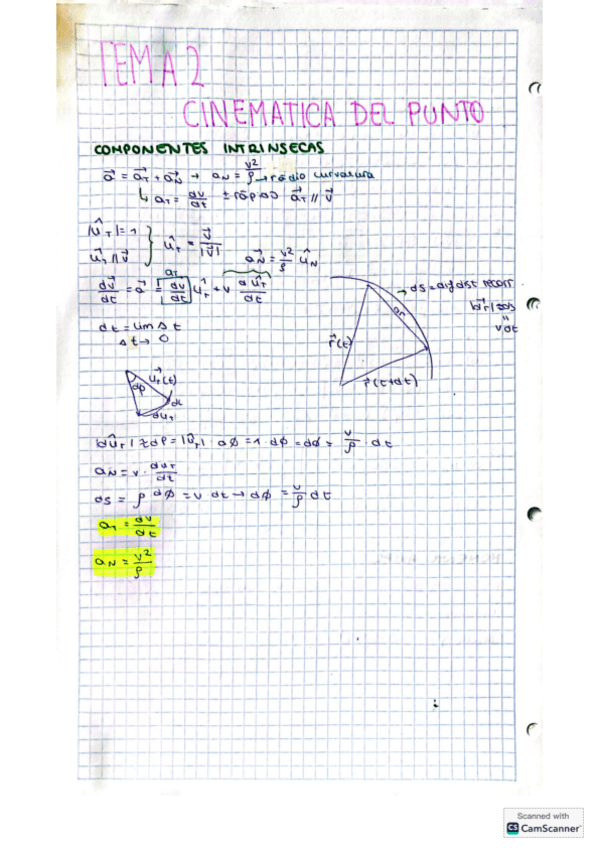 TEMA 2
CINEMATICA DEL PUNTO
COMPONENTES INTRINSECAS
a⃗ = a⃗T + a⃗N → aN = v²/ρ → radio curvatura
↳ aT = dv/dt ± rápido a⃗T // v⃗
|ûT| = 1
u⃗T // v⃗ } ûT = v⃗/|v⃗| a⃗N = v²/ρ ûN
aT
dv⃗/dt = a⃗ = dv/dt ûT + v dûT/dt
→ ds = dist recorr
v dt
dr
r⃗(t)
r⃗(t+dt)
dt = lim Δt
Δt → 0
u⃗T(t)
dφ
duT
|dûT| ≈ dφ = |ûT| · dφ = 1 · dφ = dφ = v/ρ · dt
aN = v · duT/dt
ds = ρ dφ = v dt → dφ = v/ρ dt
aT = dv/dt
aN = v²/ρ
Scanned with
CS CamScanner